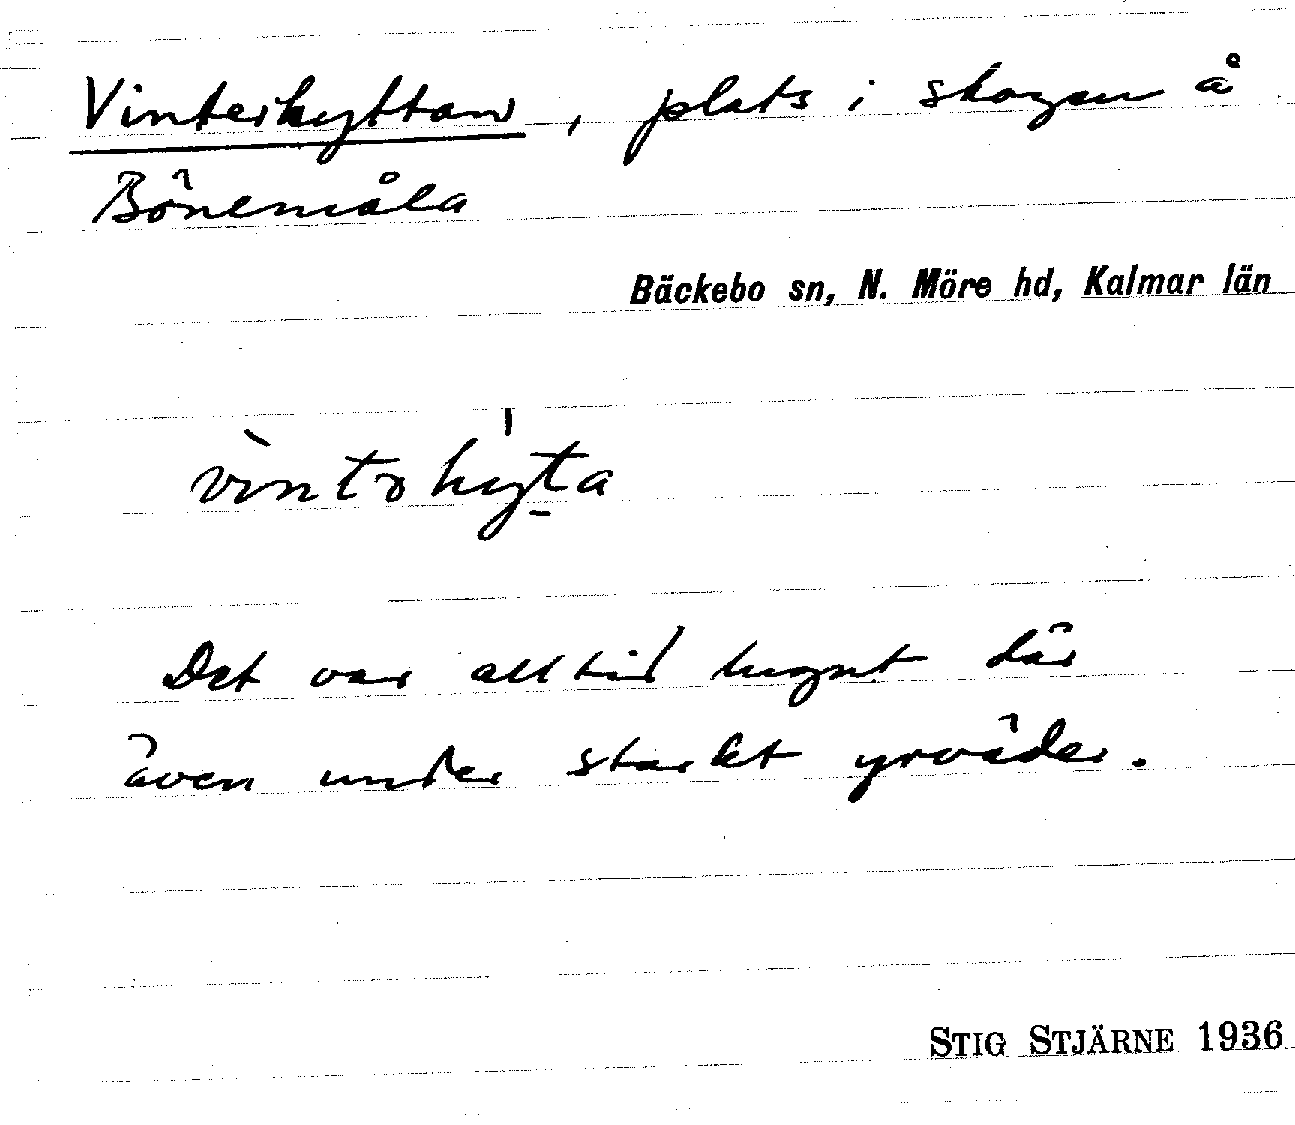 Vinterhyttan, plats i skogen å
Bönemåla
Bäckebo sn, N. Möre hd, Kalmar län
vìntəhyt̠a
Det var alltid lugnt där
även under starkt yrväder.
STIG STJÄRNE 1936